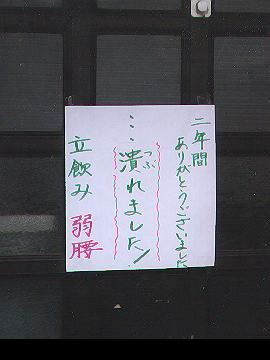 二年間
ありがとうございました
…潰れました!
つぶ
立飲み 弱腰